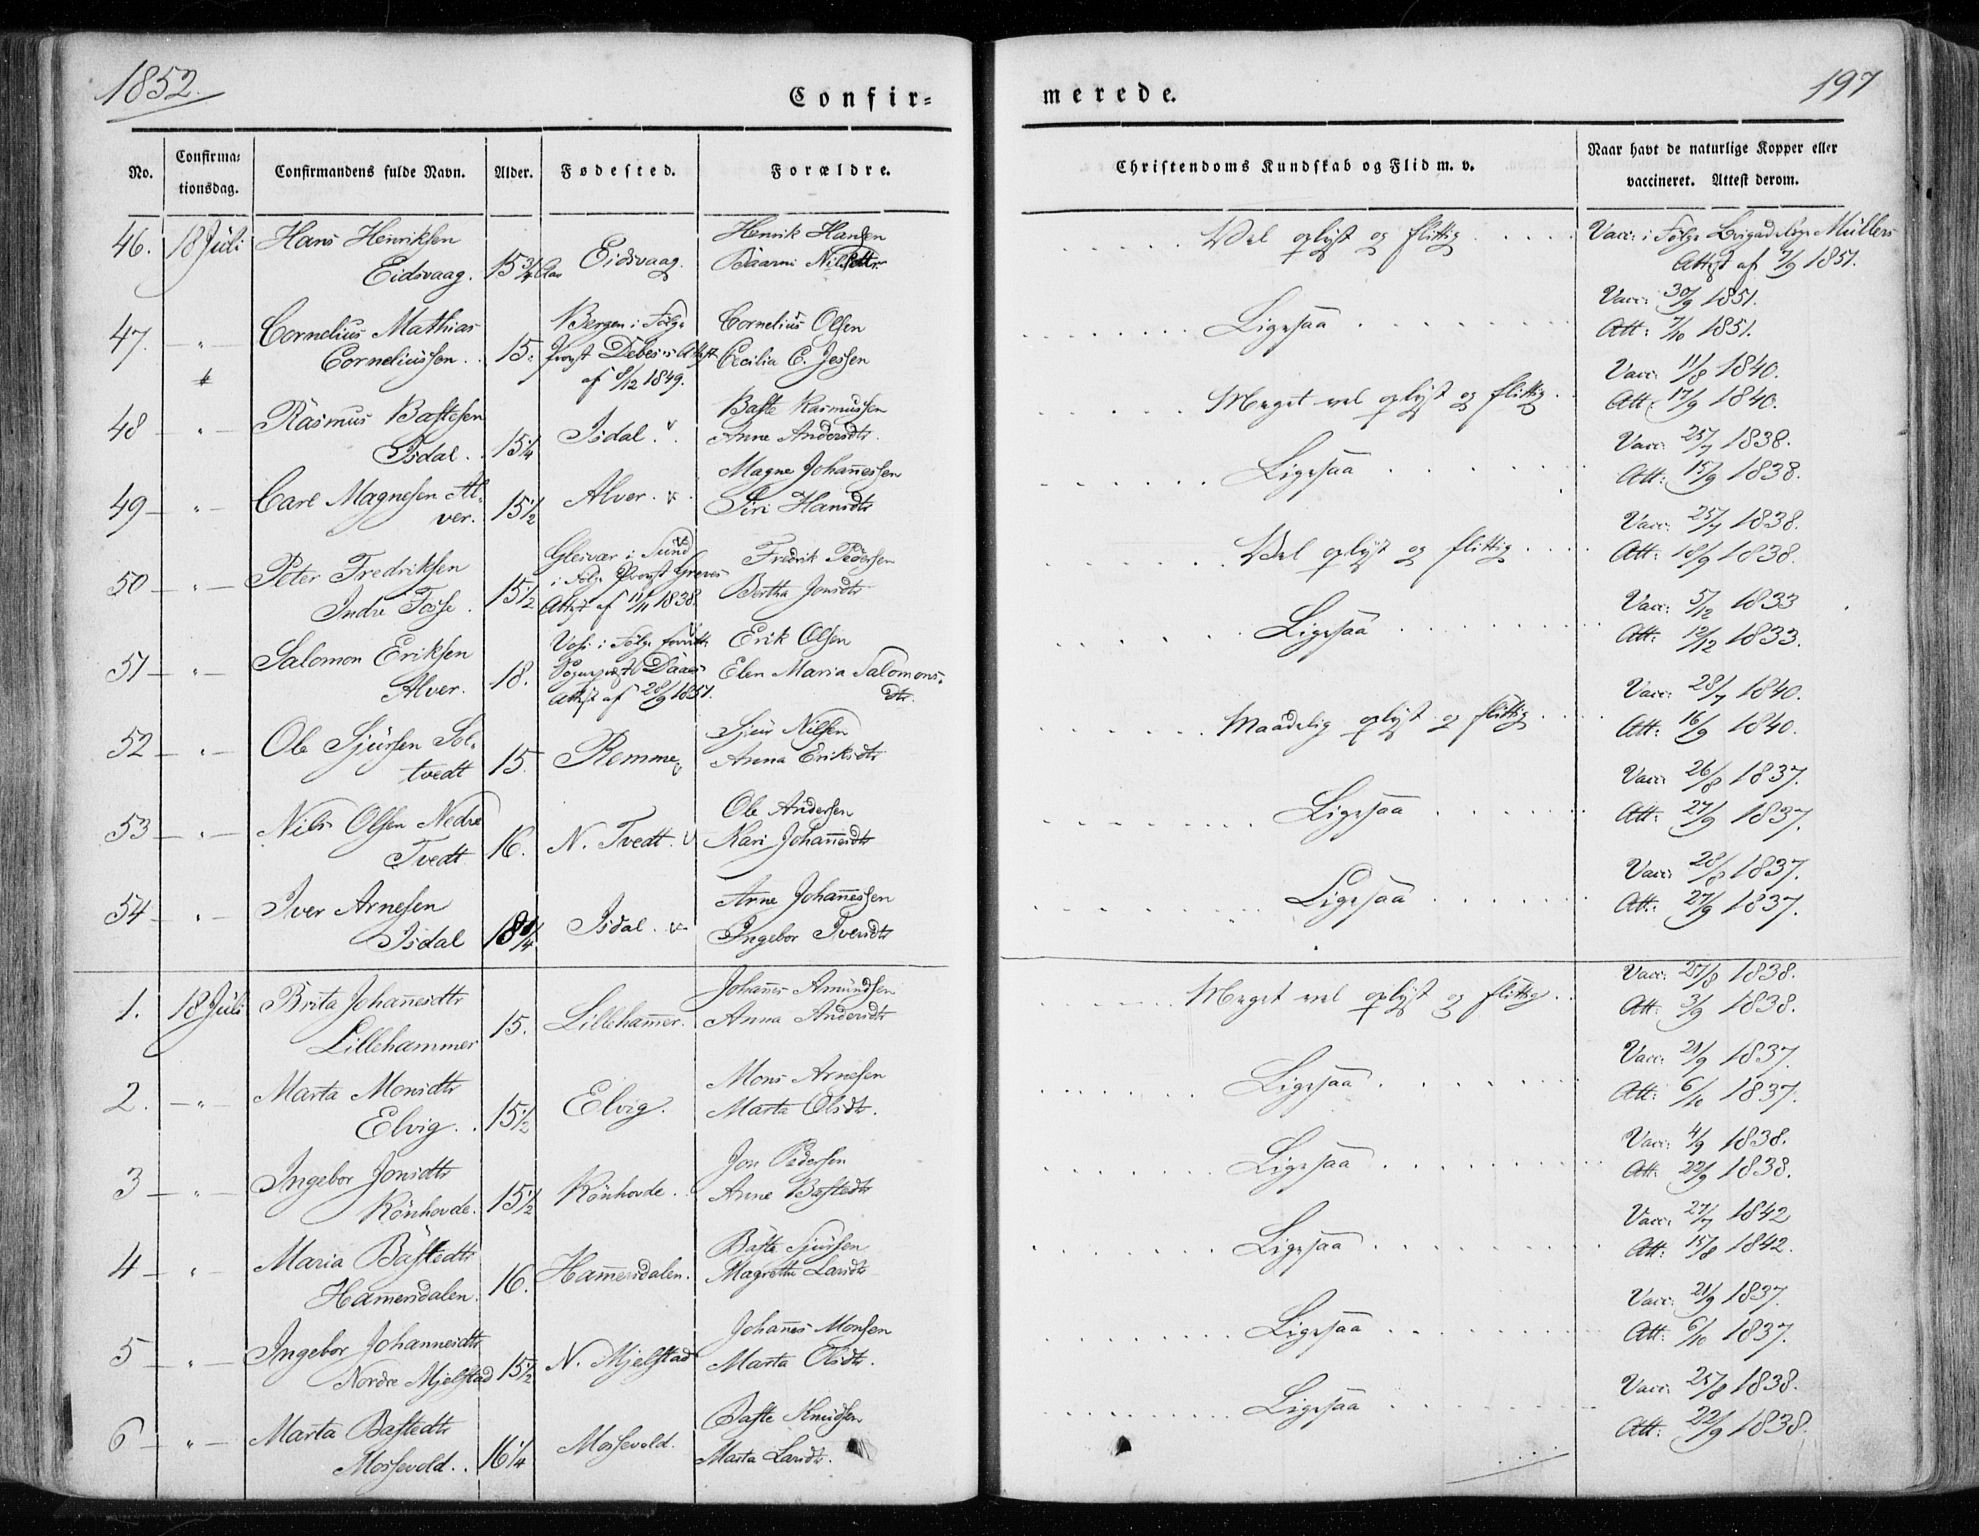 1852.
197
Confir=
merede.
No.
Confirma=
tionsdag.
Confirmandens fulde Navn.
Alder.
Fødested.
Forældre.
Christendoms Kundskab og Flid m. v.
Naar havt de naturlige Kopper eller
vaccineret. Attest derom.
46. 18 Juli Hans Henriksen
Eidsvaag. 15 3/4 Eidsvaag.
Henrik Hansen
Nilsdtr
Vel oplyst og flittig
Vacc: i Følge Müllers
Attest af 1851.
47. - " - Cornelius Mathias
Corneliussen. 15.
Bergen i Følge
Provst Debes's Attest
af 8/12 1849.
Cornelius Olsen
Cecilia C. Jessen
Ligesaa
Vacc: 30/9 1851.
Att: 7/10 1851.
48 - " - Rasmus Bastesen
Isdal. 15 1/4 Isdal.
Baste Rasmussen
Anne Andersdtr.
Meget vel oplyst og flittig.
Vacc: 11/8 1840.
Att: 17/9 1840.
49 - " - Carl Magnesen Al-
ver. 15 1/2 Alver.
Magne Johanessen
Siri Hansdtr
Ligesaa
Vacc: 25/7 1838.
Att: 15/9 1838.
50 - " - Peter Fredriksen
Indre Fosse. 15 1/2
Glesvær i Sund
i Følge Provst Greves
Attest af 11/11 1838.
Fredrik Pedersen
Bertha Jonsdtr
Vel oplyst og flittig
Vacc: 25/7 1838.
Att: 18/9 1838.
51 - " - Salomon Eriksen
Alver. 18.
Voss i Følge
Sogneprest Daaes
Attest af 28/9 1851.
Erik Olsen
Elen Maria Salomons-
dtr.
Ligesaa
Vacc: 5/12 1833
Att: 12/12 1833.
52 - " - Ole Sjursen Sol-
tvedt 15. Remme
Sjur Nilsen
Anna Eriksdtr
Maadelig oplyst og flittig
Vacc: 28/7 1840.
Att: 16/9 1840.
53 - " - Nils Olsen Nedre
Tvedt 16. N. Tvedt.
Ole Andersen
Kari Johanesdtr
Ligesaa
Vacc: 26/8 1837.
Att: 27/9 1837.
54 - " - Iver Arnesen
Isdal 18 1/4 Isdal.
Arne Johanessen
Ingebor Iversdtr
Ligesaa
Vacc: 28/8 1837.
Att: 27/9 1837.
1. 18 Juli Brita Johanesdtr
Lillehammer 15. Lillehamer.
Johanes Amundsen
Anna Andersdtr
Meget vel oplyst og flittig.
Vacc: 25/8 1838.
Att: 3/9 1838.
2. - " - Marta Monsdtr
Elvig. 15 1/2 Elvig.
Mons Arnesen
Marta Olsdtr.
Ligesaa
Vacc: 21/9 1837.
Att: 6/10 1837.
3 - " - Ingebor Jonsdtr
Rönhovde. 15 1/2 Rönhovde.
Jon Pedersen
Anne Bastedtr
Ligesaa
Vacc: 4/9 1838.
Att: 22/9 1838.
4 - " - Maria Bastedtr
Hamersdalen. 16. Hamersdalen.
Baste Sjursen
Magrethe Larsdtr
Ligesaa
Vacc: 27/7 1842
Att: 15/8 1842.
5 - " - Ingebor Johannesdtr
Nordre Mjelstad 15 1/2 N. Mjelstad
Johanes Monsen
Marta Olsdtr.
Ligesaa
Vacc: 21/9 1837.
Att: 6/10 1837.
6 - " - Marta Bastedtr
Mossevold. 16 1/4 Mossevold.
Baste Knudsen
Marta Larsdtr.
Ligesaa
Vacc: 25/8 1838.
Att: 22/9 1838.